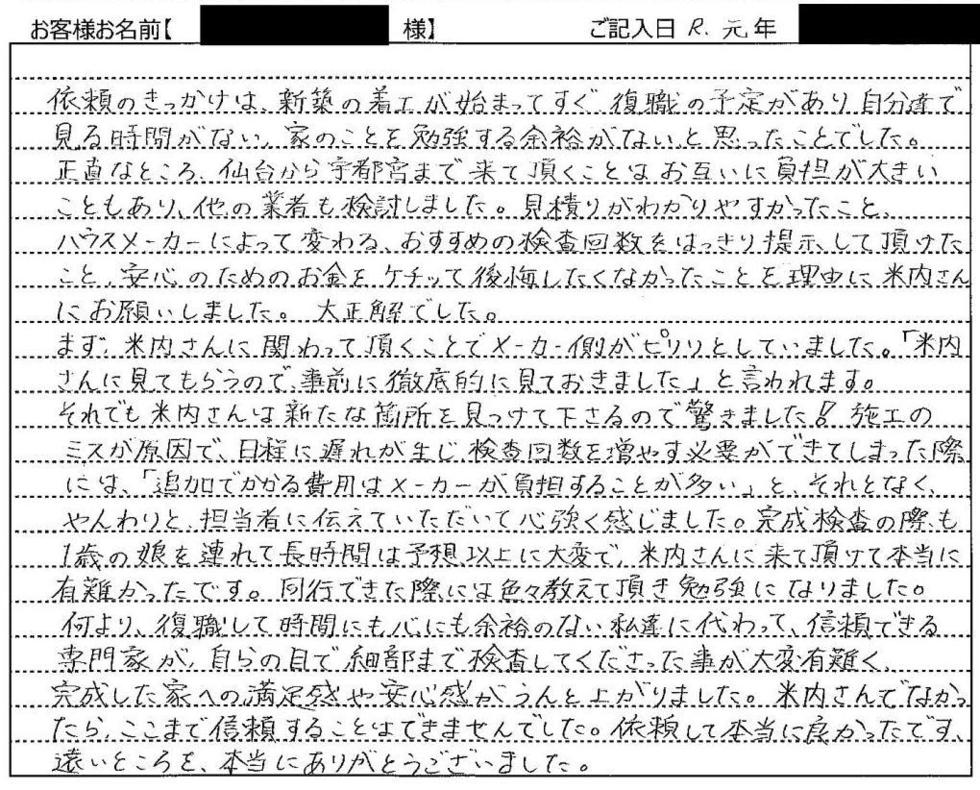 お客様お名前【 様】 ご記入日 R. 元年
依頼のきっかけは、新築の着工が始まってすぐ、復職の予定があり自分達で
見る時間がない、家のことを勉強する余裕がないと思ったことでした。
正直なところ、仙台から宇都宮まで来て頂くことはお互いに負担が大きい
こともあり、他の業者も検討しました。見積りがわかりやすかったこと、
ハウスメーカーによって変わる、おすすめの検査回数をはっきり提示して頂けた
こと、安心のためのお金をケチって後悔したくなかったことを理由に米内さん
にお願いしました。大正解でした。
まず、米内さんに関わって頂くことでメーカー側がピリリとしていました。「米内
さんに見てもらうので、事前に徹底的に見ておきました」と言われます。
それでも米内さんは新たな箇所を見つけて下さるので驚きました!施工の
ミスが原因で、日程に遅れが生じ検査回数を増やす必要ができてしまった際
には、「追加でかかる費用はメーカーが負担することが多い」と、それとなく、
やんわりと、担当者に伝えていただいて心強く感じました。完成検査の際も
1歳の娘を連れて長時間は予想以上に大変で、米内さんに来て頂けて本当に
有難かったです。同行できた際には色々教えて頂き勉強になりました。
何より、復職して時間にも心にも余裕のない私達に代わって、信頼できる
専門家が、自らの目で細部まで検査してくださった事が大変有難く、
完成した家への満足感や安心感がうんと上がりました。米内さんでなかっ
たら、ここまで信頼することはできませんでした。依頼して本当に良かったです、
遠いところを、本当にありがとうございました。